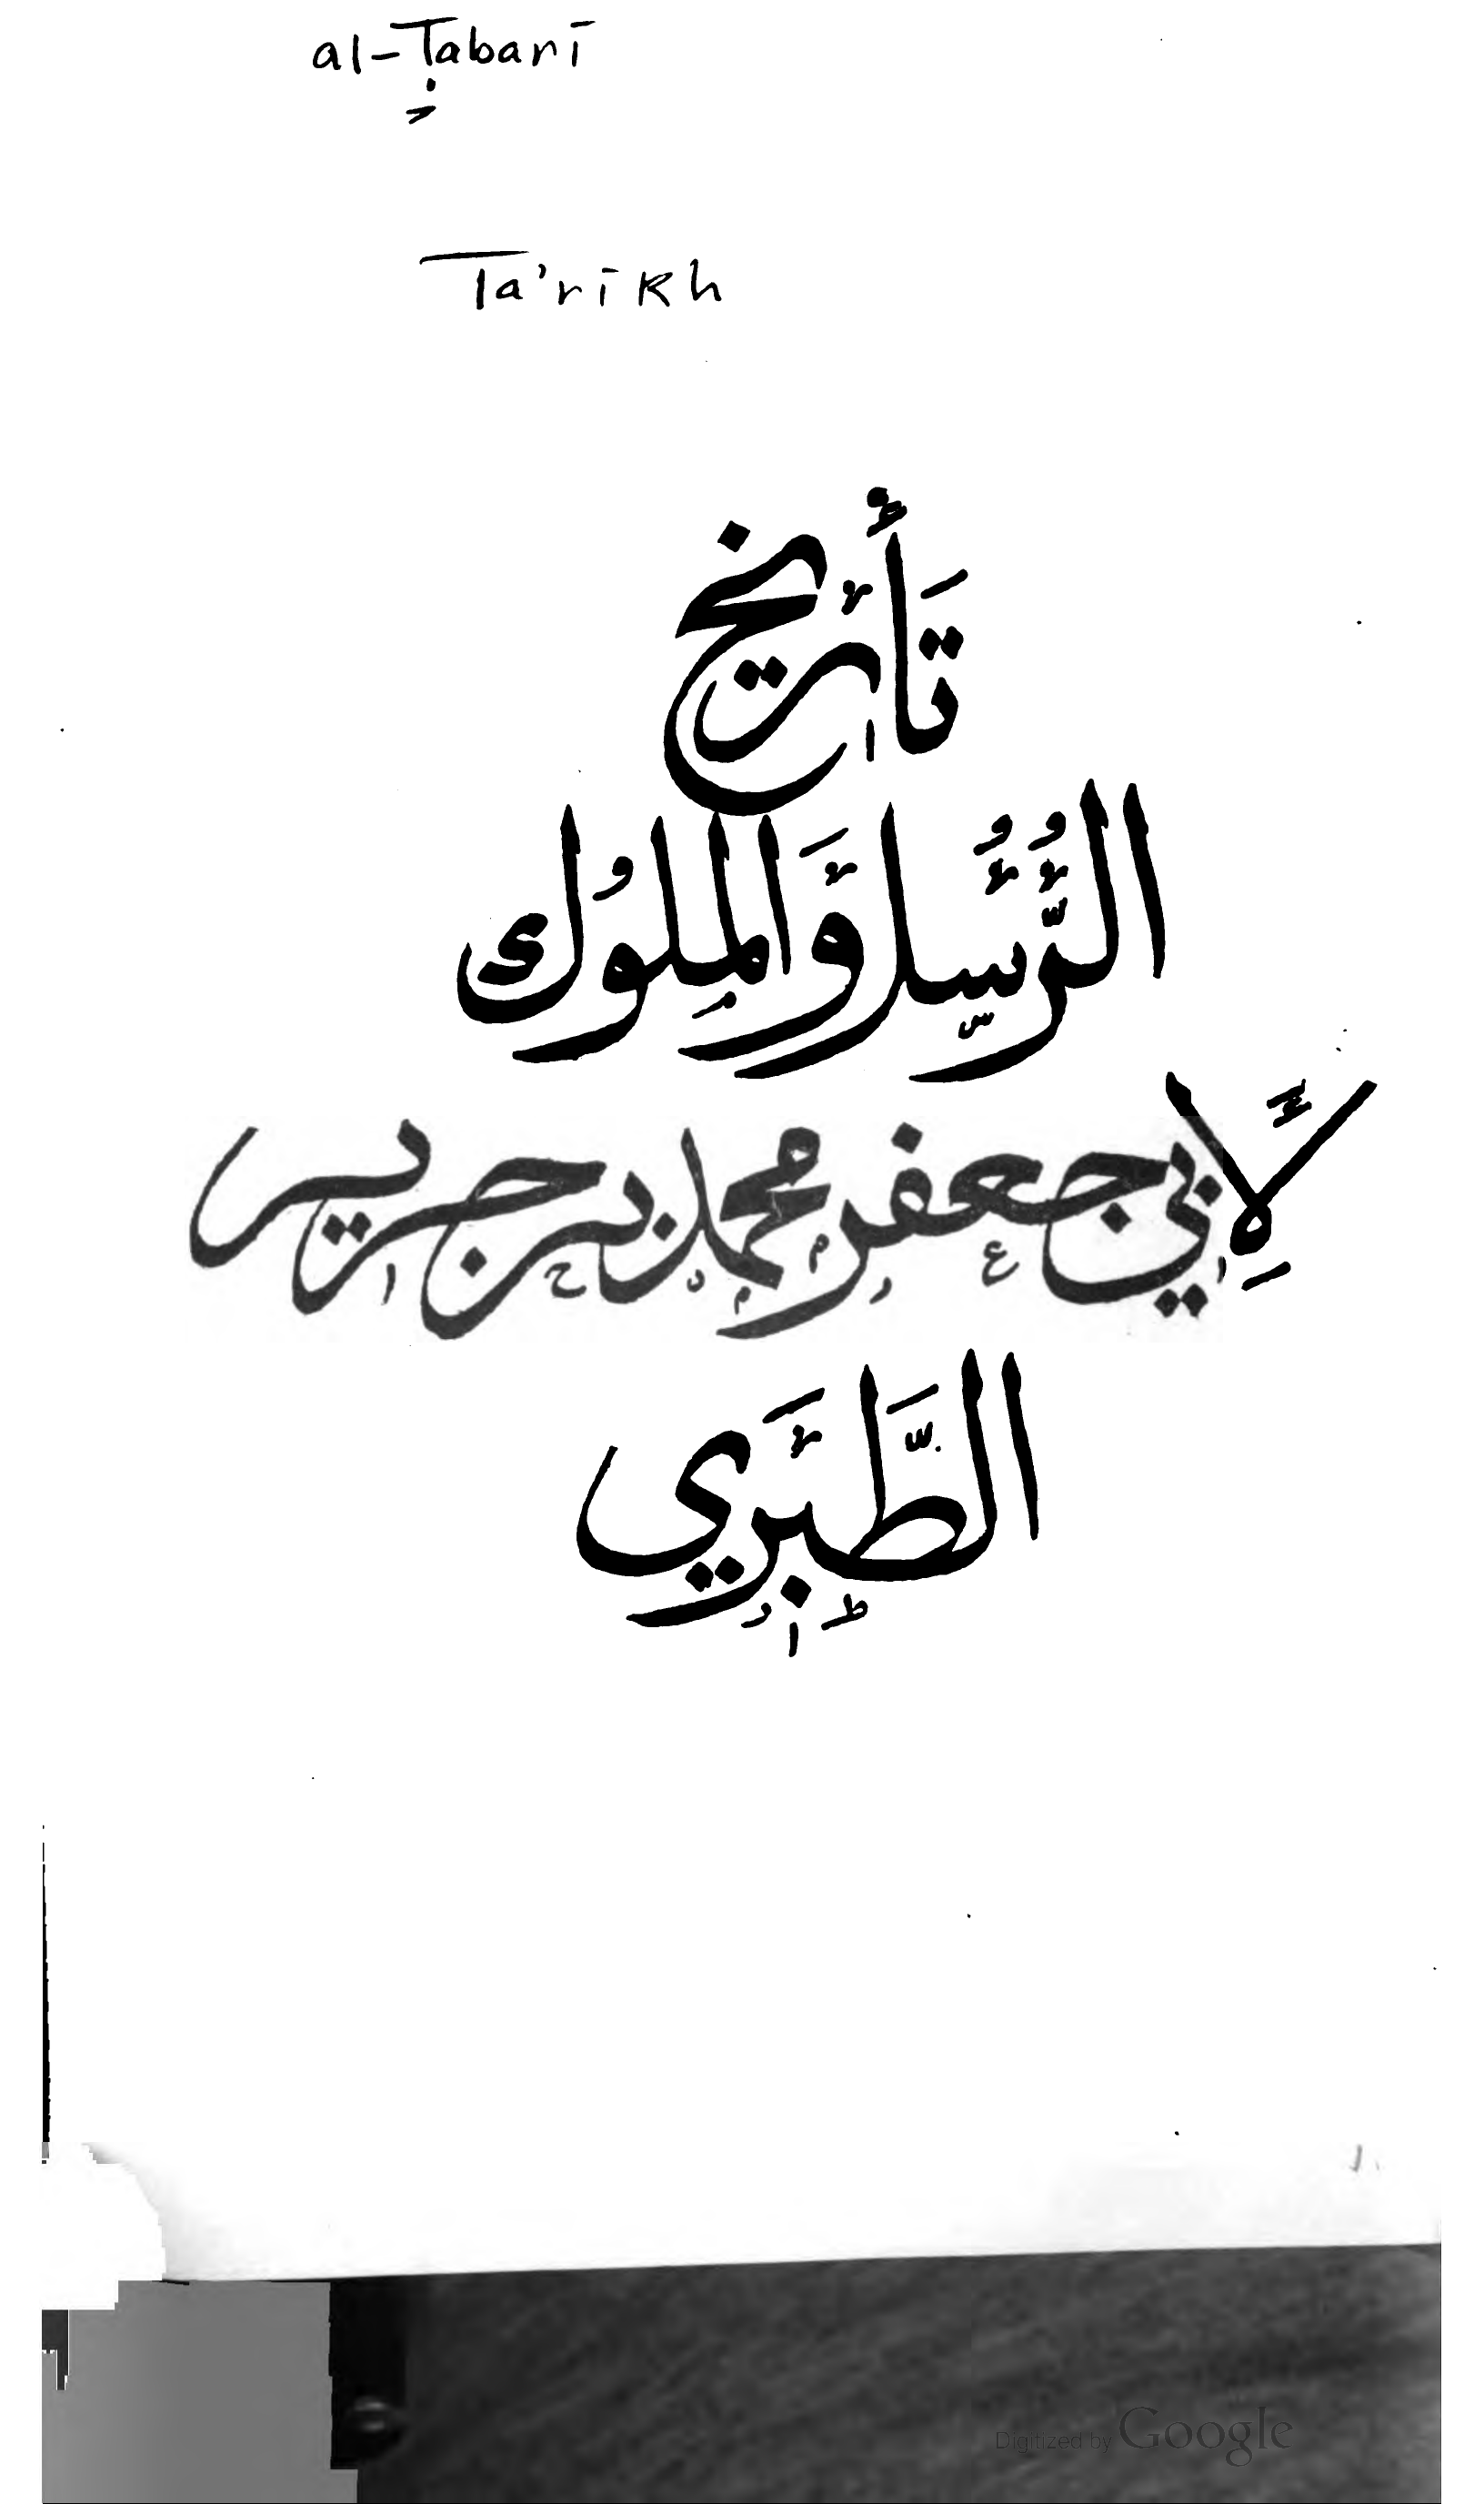 al-Ṭabarī
Ta'rīkh
تَأْرِيخ
الرُّسُل وَالمُلُوك
لِأَبِي جعفر محمد بن جرير
الطَّبَرِي
Digitized by Google